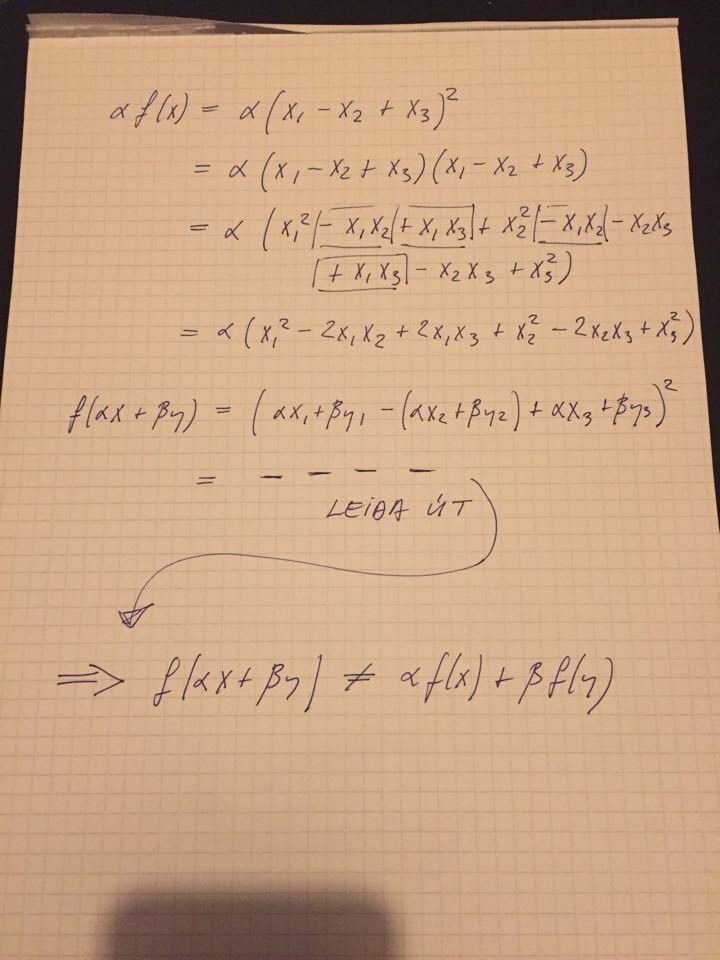 α f(x) = α (x₁ - x₂ + x₃)²
= α (x₁ - x₂ + x₃)(x₁ - x₂ + x₃)
= α (x₁² - x₁x₂ + x₁x₃ + x₂² - x₁x₂ - x₂x₃
+ x₁x₃ - x₂x₃ + x₃²)
= α (x₁² - 2x₁x₂ + 2x₁x₃ + x₂² - 2x₂x₃ + x₃²)
f(αx + βy) = (αx₁ + βy₁ - (αx₂ + βy₂) + αx₃ + βy₃)²
= _ _ _ _
LEIÐA ÚT
⇒ f(αx + βy) ≠ αf(x) + βf(y)